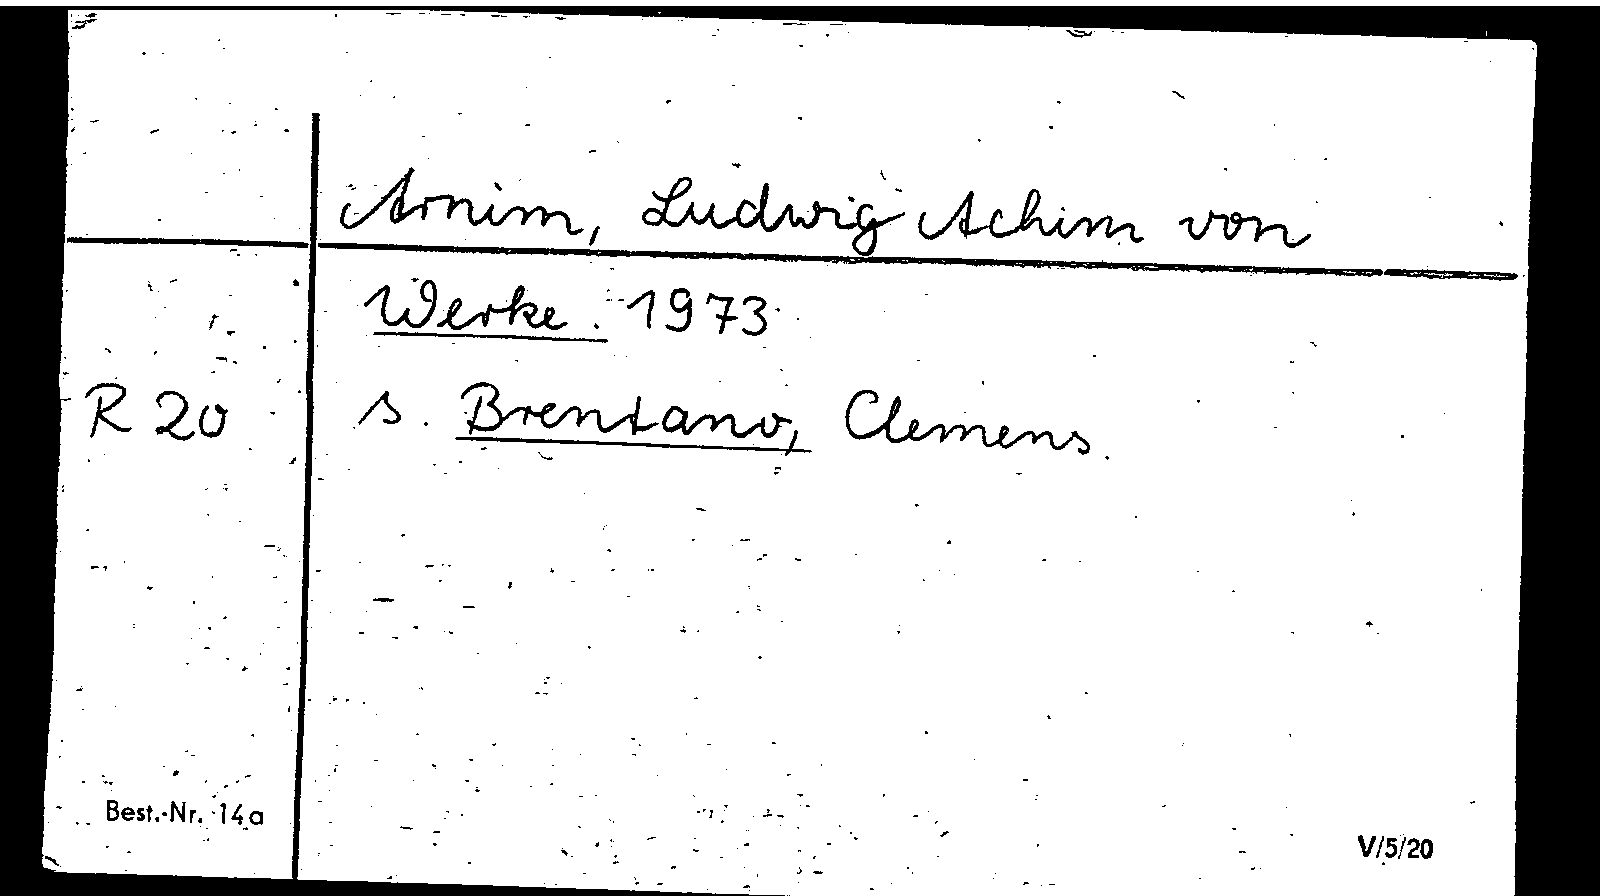 Arnim, Ludwig Achim von
Werke. 1973
R 20 s. Brentano, Clemens.
Best.-Nr. 14a
V/5/20